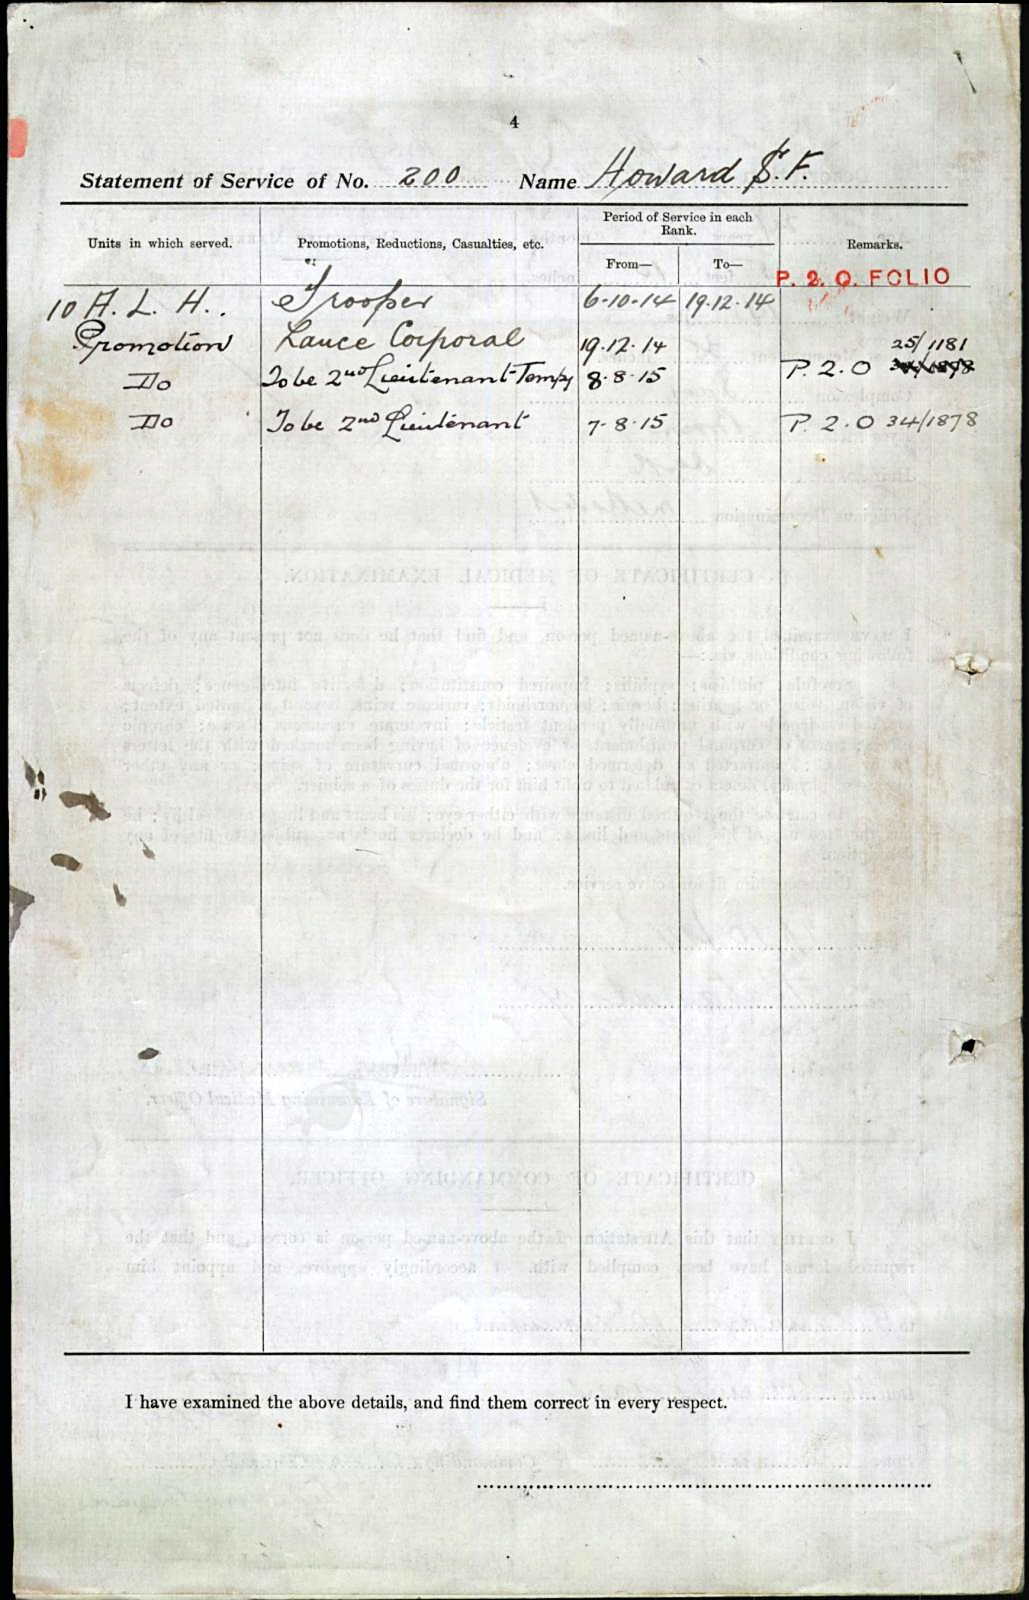 4
Statement of Service of No. 200 Name Howard S. F.
Units in which served.
Promotions, Reductions, Casualties, etc.
Period of Service in each Rank.
From—
To—
Remarks.
P. 2. O. FOLIO
10 A. L. H.. Trooper 6-10-14 19.12.14
Promotion Lance Corporal 19.12.14 25/1181
Do To be 2nd Lieutenant Tempy 8.8.15 P. 2. O
Do To be 2nd Lieutenant 7-8-15 P. 2. O 34/1878
I have examined the above details, and find them correct in every respect.